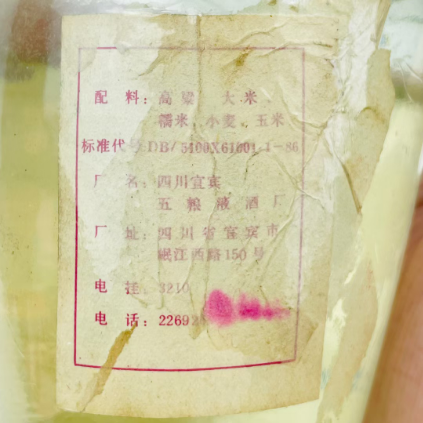 配 料：高 粱 大 米、
糯米、小麦、玉米
标准代号:DB/5100X61601·1-86
厂 名：四川宜宾
五 粮 液 酒 厂
厂 址：四川省宜宾市
岷江西路150号
电 挂：3210
电 话：22692